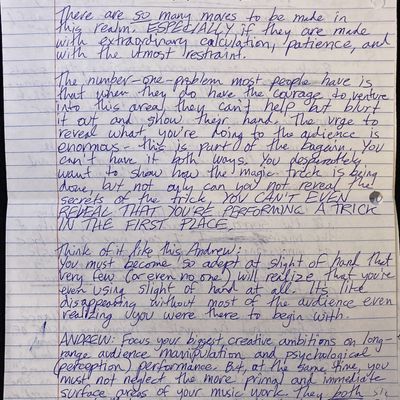 There are so many moves to be made in
this realm. ESPECIALLY if they are made
with extraordinary calculation, patience, and
with the utmost restraint.
The number-one-problem most people have is
that when they do have the courage to venture
into this area, they can't help but blurt
it out and show their hand. The urge to
reveal what you're doing to the audience is
enormous - this is part of the bargain. You
can't have it both ways. You desperately
want to show how the magic trick is being
done, but not only can you not reveal the
secrets of the trick, YOU CAN'T EVEN
REVEAL THAT YOU'RE PERFORMING A TRICK
IN THE FIRST PLACE.
Think of it like this Andrew:
You must become so adept at slight of hand that
very few (or even no one) will realize that you're
even using slight of hand at all. Its like
disappearing without most of the audience even
realizing you were there to begin with.
ANDREW: Focus your biggest creative ambitions on long-
range audience manipulation and psychological
(perception) performance. But, at the same time, you
must not neglect the more primal and immediate
surface areas of your music work. They both